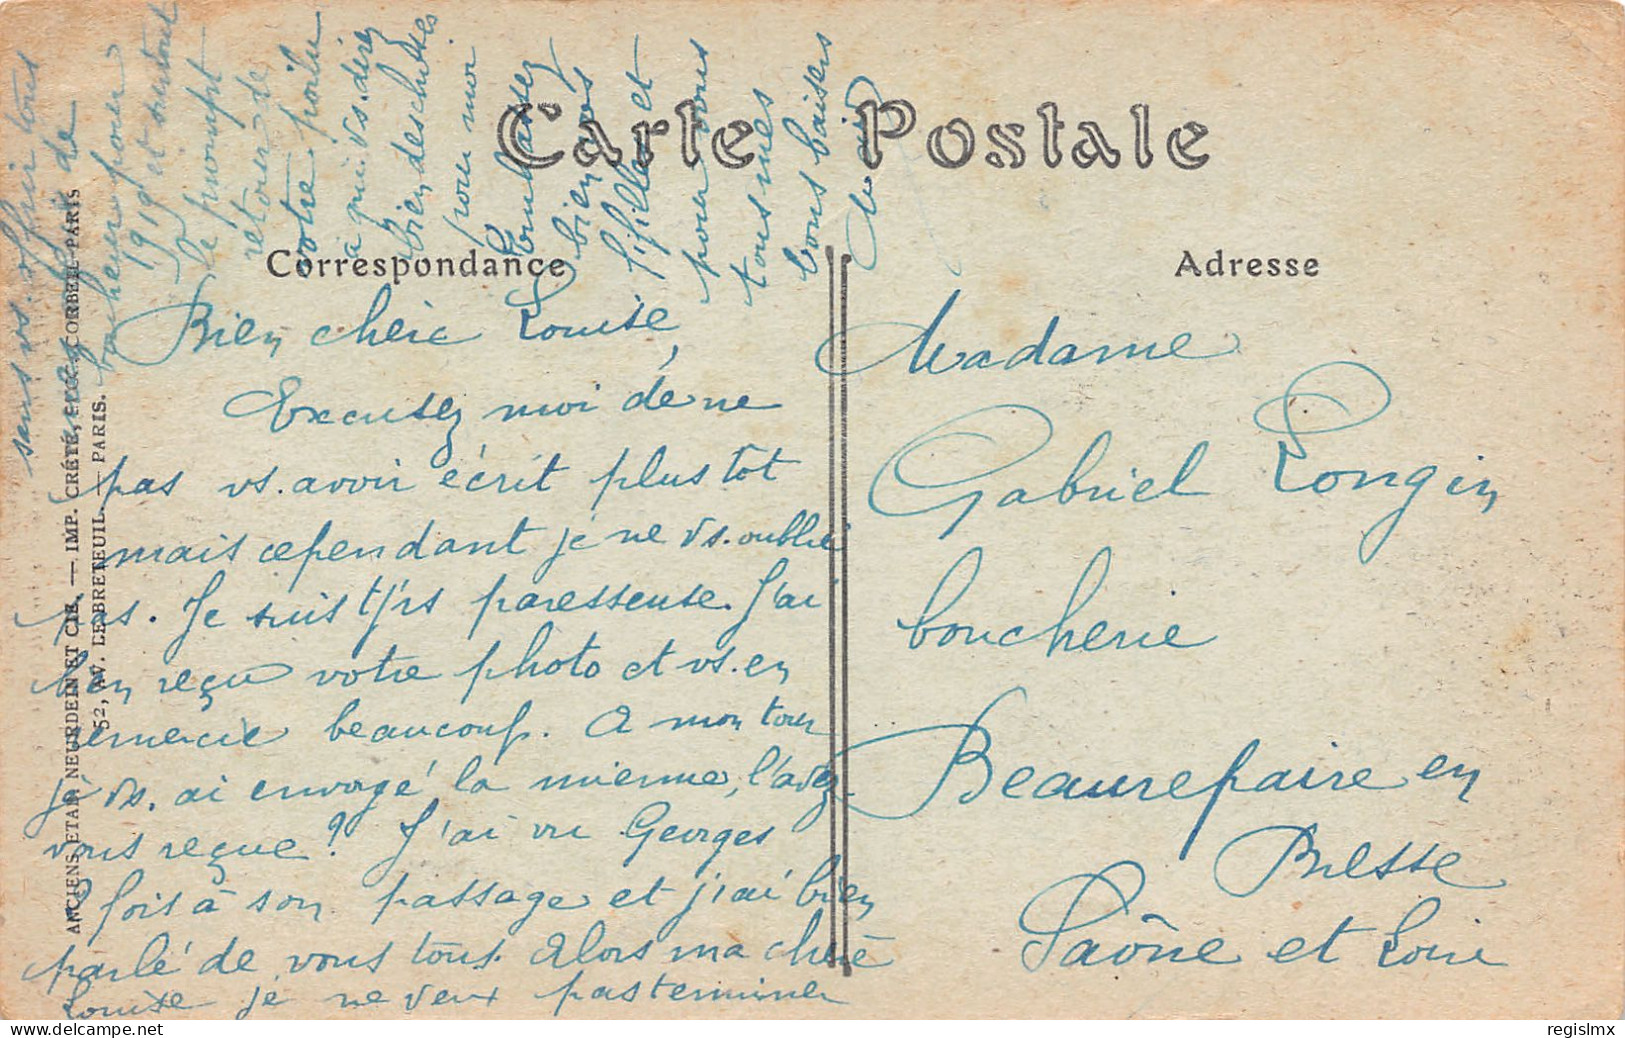 Carte Postale
Correspondance
Adresse
Bien chère Louise,
Excusez moi de ne
pas vs. avoir écrit plus tôt
mais cependant je ne vs. oublie
pas. Je suis tjrs paresseuse. J'ai
bien reçu votre photo et vs. en
remercie beaucoup. A mon tour
je vs. ai envoyé la mienne, l'avez
vous reçue? J'ai vu Georges
2 fois à son passage et j'ai bien
parlé de vous tous. Alors ma chère
Louise je ne veux pas terminer
sans vs. offrir tous
de
bonheur pour
1919 et surtout
le prompt
retour de
votre poilu
à qui vs. direz
bien des choses
pour moi
Embrassez
bien vos
filles et
pour vous
tous mes
bons baisers
Madame
Gabriel Longin
boucherie
Beaurepaire en
Bresse
Saône et Loire
ANCIENS ETAB. NEURDEIN ET CIE. — IMP. CRÉTÉ, SUCC. CORBEIL-PARIS
52, AV. LEBRETEUIL. — PARIS.
www.delcampe.net
regislmx